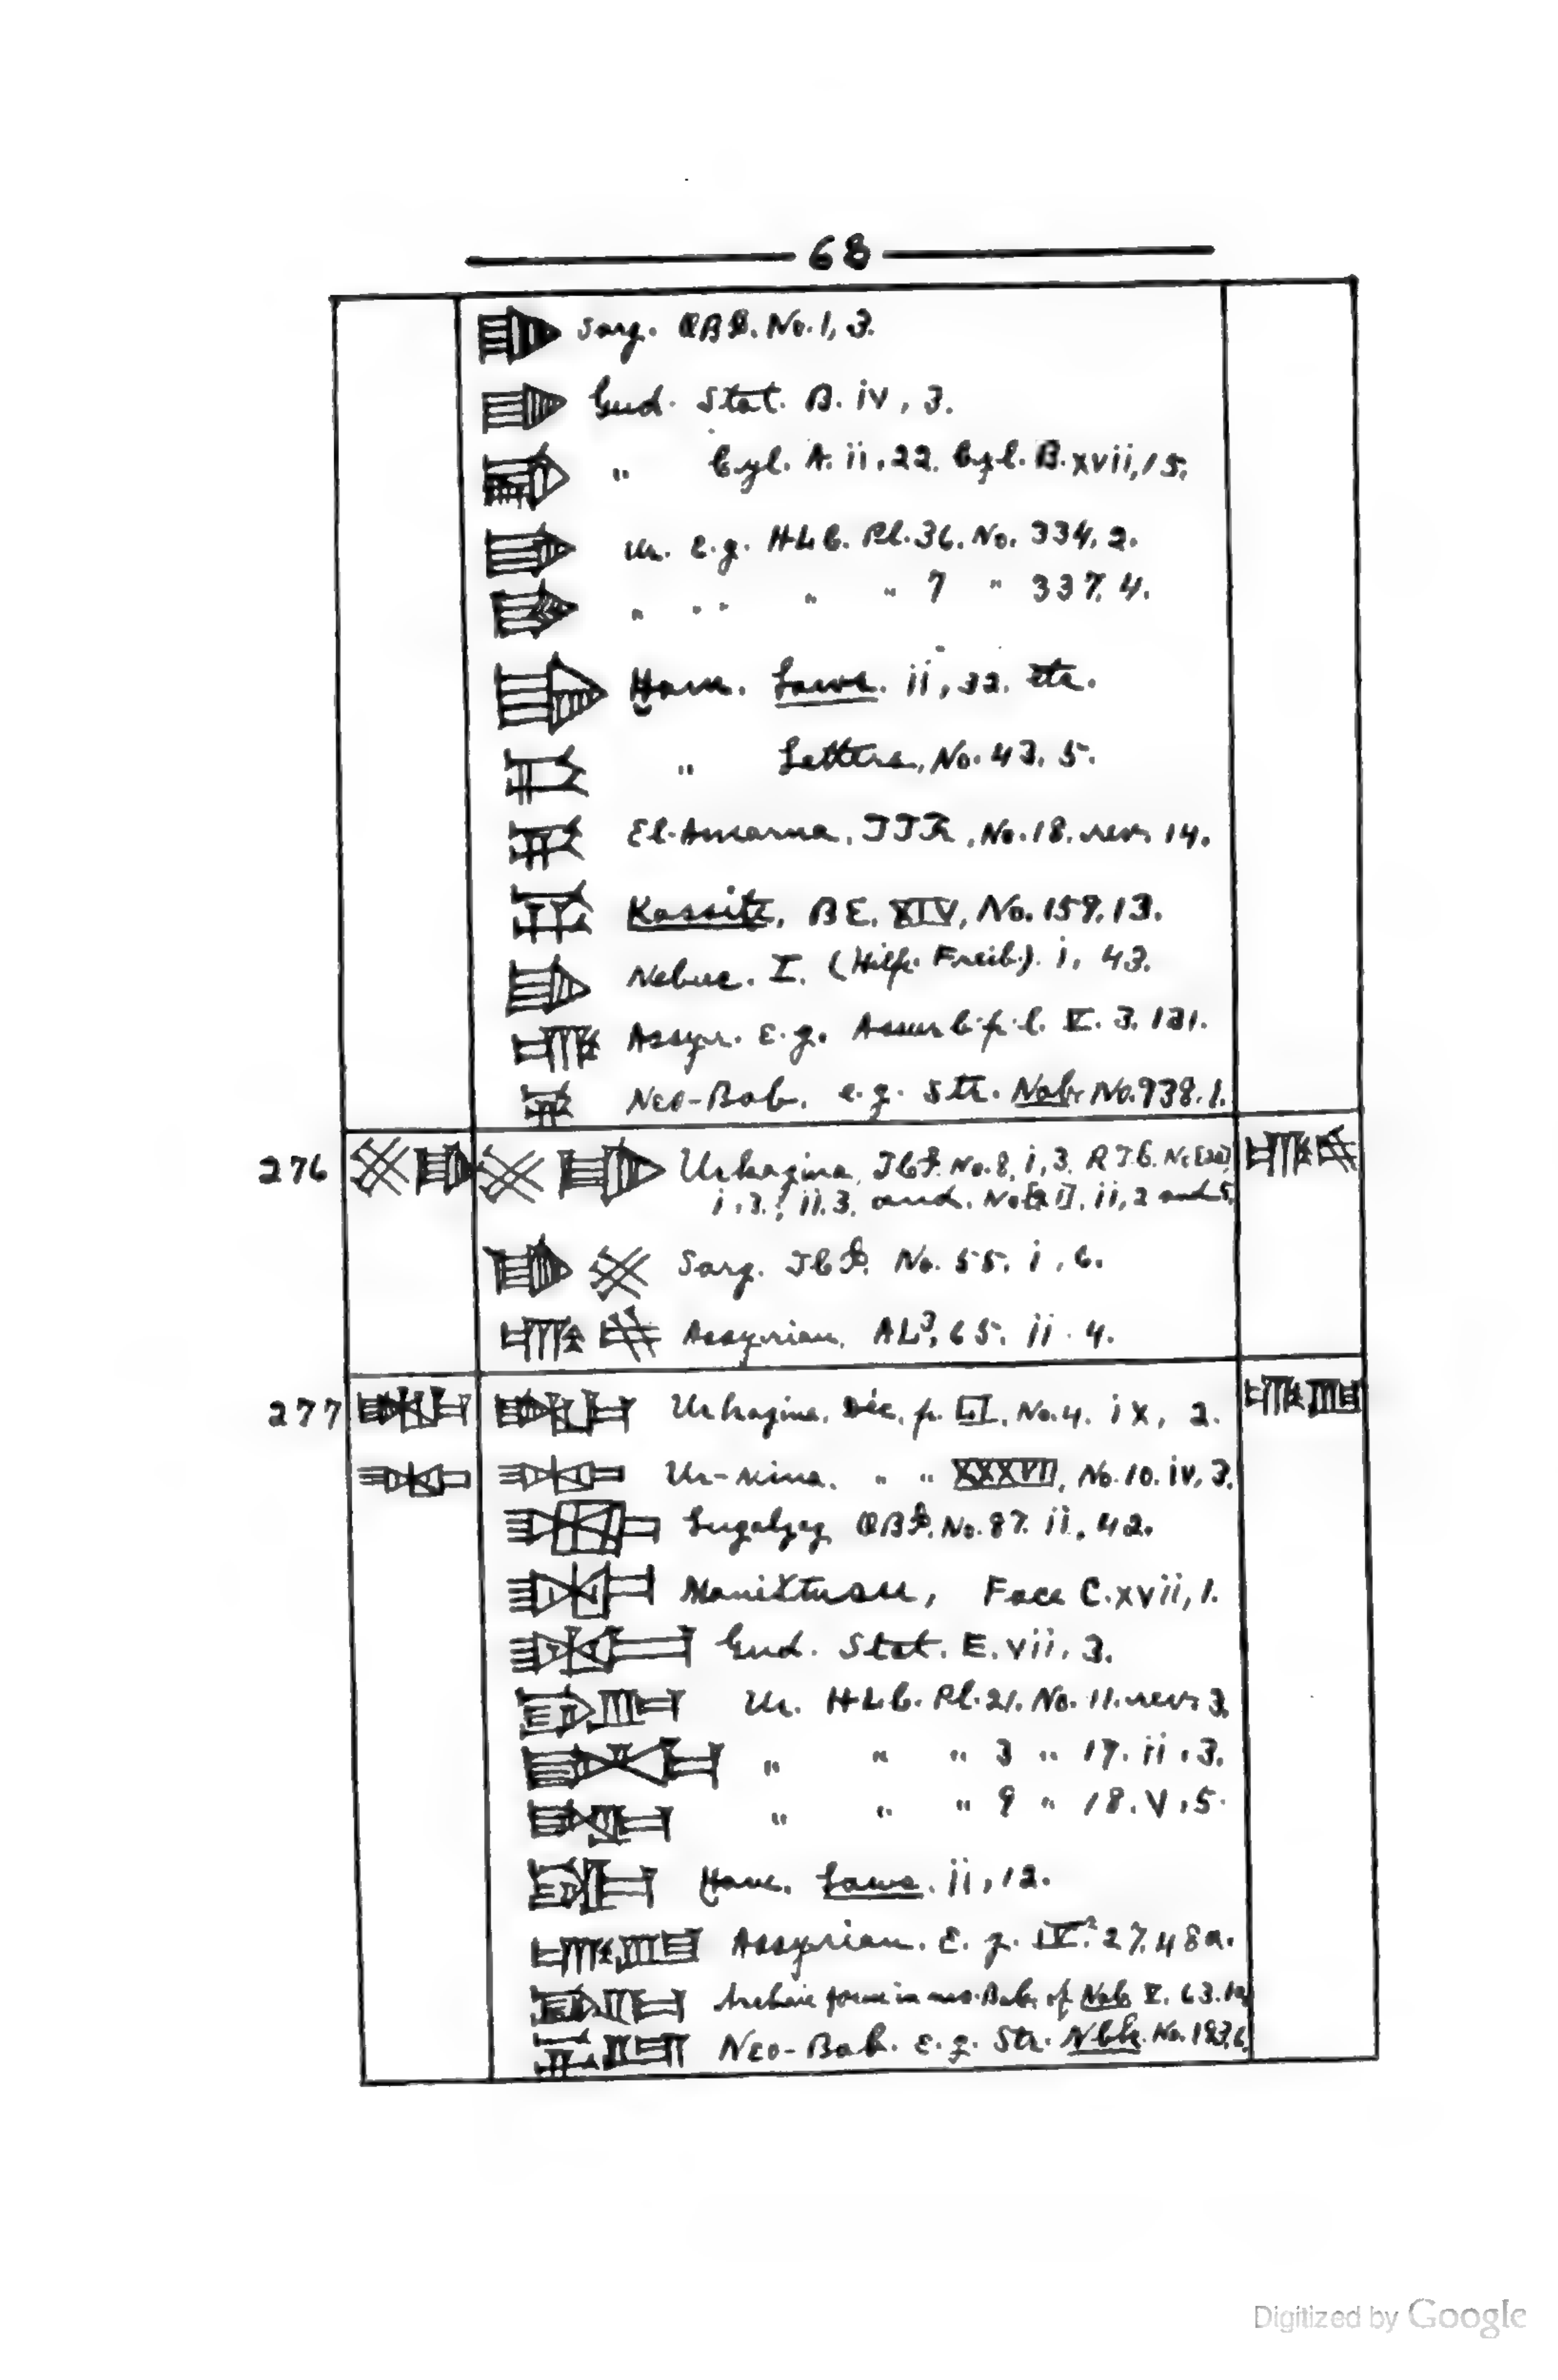 68
Sarg. OBI. No. 1, 3.
Gud. Stat. B. iv, 3.
" Cyl. A. ii, 22. Cyl. B. xvii, 15.
Ur. e.g. HLC. Pl. 36. No. 334, 2.
" " " " " 7 " 337. 4.
Ham. Laws. ii, 32. etc.
" Letters, No. 43. 5.
El-Amarna, No. 18. rev. 14.
Kassite, BE. XIV, No. 159. 13.
Nebuc. I. (Hilp. Freib.) i, 43.
Assyr. E.g. Assurb-p-l. V. 3. 131.
Neo-Bab. e.g. Str. Nab. No. 938. 1.
276 Urkagina, No. 8, i, 3. RTC.
i, 3. ii. 3. and. ii, 2 and 5.
Sarg. No. 55. i, 6.
Assyrian. AL³, 65. ii. 4.
277 Urkagina, Déc. p. LI, No. 4. ix, 2.
Ur-Nina. " " XXXVII, No. 10. iv, 3.
Lugalzag OBI. No. 87. ii, 42.
Maništusu, Face C. xvii, 1.
Gud. Stat. E. vii, 3.
Ur. HLC. Pl. 21. No. 11. rev. 3.
" " " 3 " 17. ii, 3.
" " " 9 " 18. V, 5.
Ham. Laws. ii, 12.
Assyrian. E.g. IV². 27. 48a.
Archaic form in neo-Bab. of Nab. V. 63.
Neo-Bab. E.g. Str. Nbk. No. 183, 6.
Digitized by Google